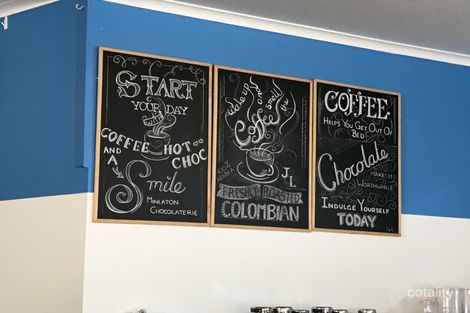 START
YOUR DAY
WITH
COFFEE HOT
AND CHOC
A Smile
MINLATON
CHOCOLATERIE
wake up and smell the
Coffee
100%
FRESHLY ROASTED
COLOMBIAN
COFFEE
HELPS YOU GET OUT OF
BED
Chocolate
MAKES IT
WORTHWHILE
INDULGE YOURSELF
TODAY
cotality